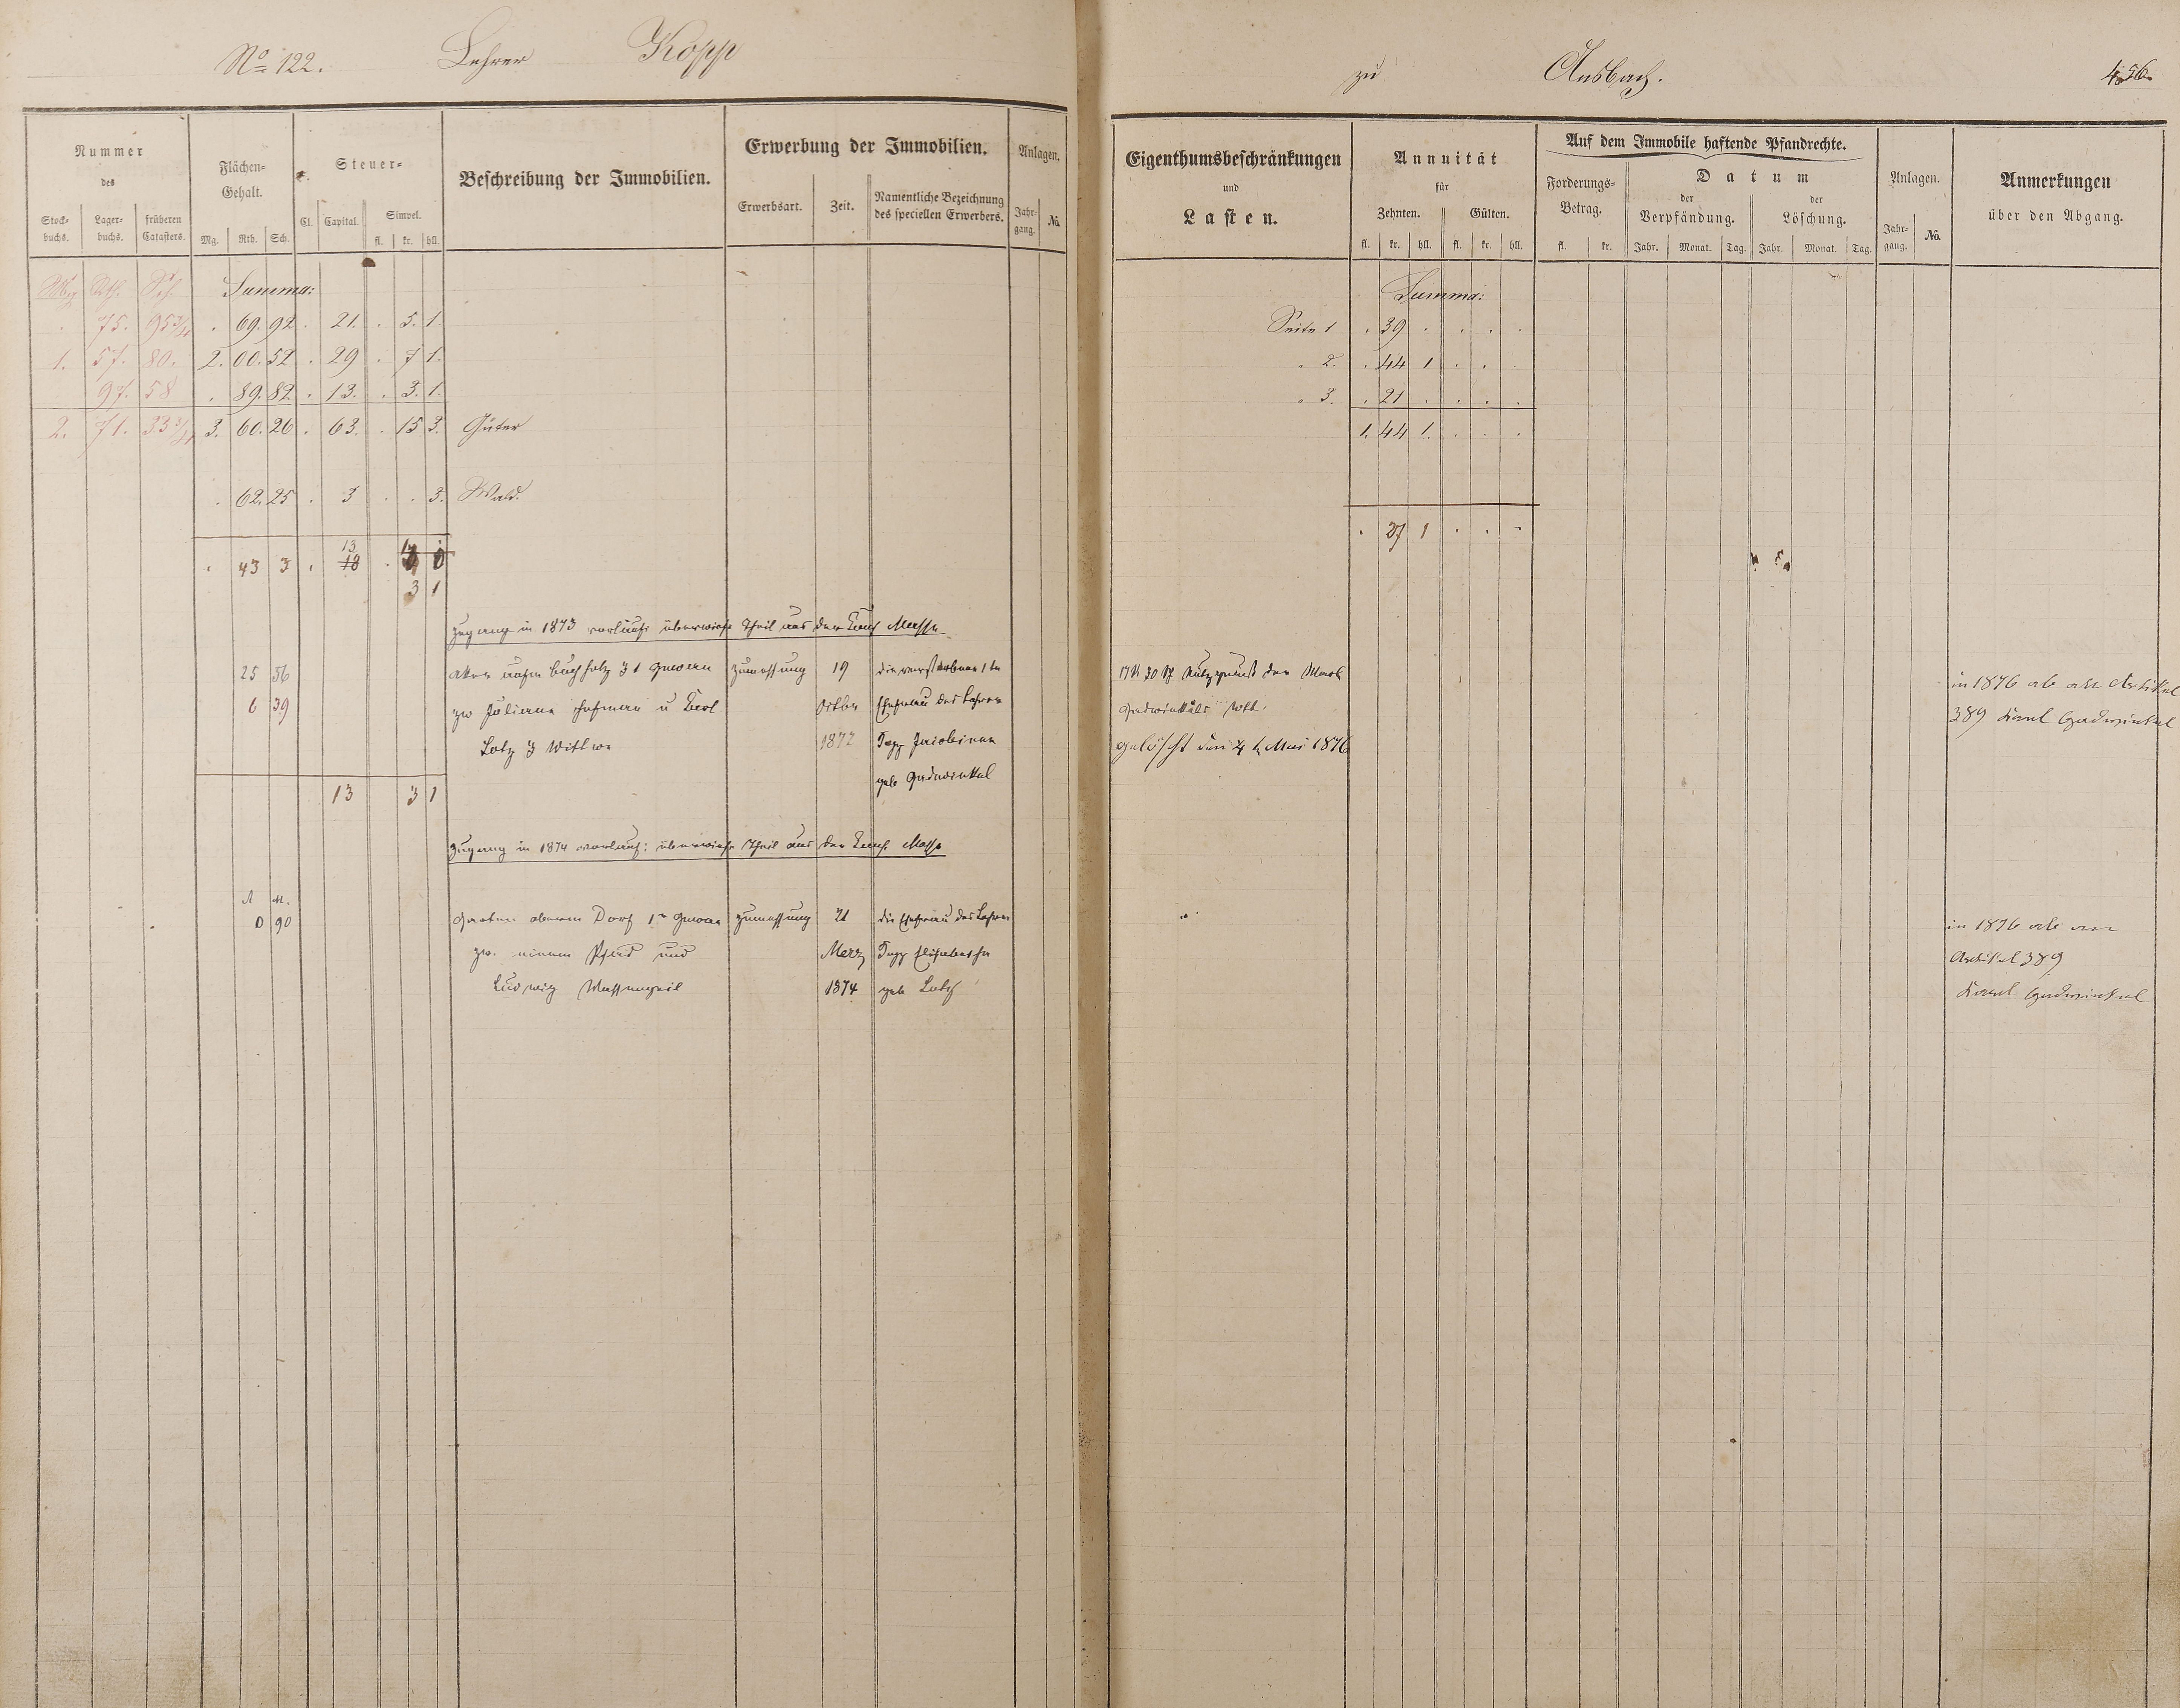 No 122. Lehrer Kopp
zu Ansbach. 456.
Nummer
des
Stock-
buchs.
Lager-
buchs.
früheren
Catasters.
Flächen-
Gehalt.
Mg. Rth. Sch.
Steuer-
Cl. Capital. Simpel.
fl. kr. hll.
Beschreibung der Immobilien.
Erwerbung der Immobilien.
Erwerbsart. Zeit.
Namentliche Bezeichnung
des speciellen Erwerbers.
Anlagen.
Jahr-
gang. No.
Mg Rth. Sch. Summa:
. 75. 95 3/4 . 69. 92 . 21. . 5. 1.
1. 57. 80. 2. 00. 52 . 29 . 7 1.
97. 58 . 89. 82 . 13. . 3. 1.
2. 71. 33 3/4 3. 60. 26 . 63. . 15 3. Güter
. 62. 25 . 3 . . 3. Wald.
13
. 43 3 . 18 . 4 0
3 1
Zugang in 1873 vorläufi überwies Theil aus der Masse
25 56 Aker aufm Buchholz 3 t Gewann Zumessung 19 die verstorbene 1 te
6 39 zw Juliana Hofmann u Karl Octbr Ehefrau des Lehrer
Lotz Wittwe 1872 Kopp Jacobine
geb Gadewinkel
13 3 1
Zugang in 1874 vorläuf: überwies Theil aus der Masse
A M.
0 90 Garten oberm Dorf 1 r Gewann Zumessung 21 die Ehefrau des Lehrer
zw. einem Pfad und Merz Kopp Elisabethe
Ludwig 1874 geb
Eigenthumsbeschränkungen
und
Lasten.
Annuität
für
Zehnten. Gülten.
fl. kr. hll. fl. kr. hll.
Auf dem Immobile haftende Pfandrechte.
Forderungs-
Betrag.
fl. kr.
Datum
der
Verpfändung.
Jahr. Monat. Tag.
der
Löschung.
Jahr. Monat. Tag.
Anlagen.
Jahr-
gang. No.
Anmerkungen
über den Abgang.
Summa:
Seite 1 . 39 . . . .
" 2. . 44 1 . . .
" 3. . 21 . . . .
1. 44 1. . . .
. 27 1 . . .
der
gelöscht den 4 t Mai 1876
in 1876 ab an Artikel
389 Karl Gadewinkel
in 1876 ab an
Artikel 389
Karl Gadewinkel